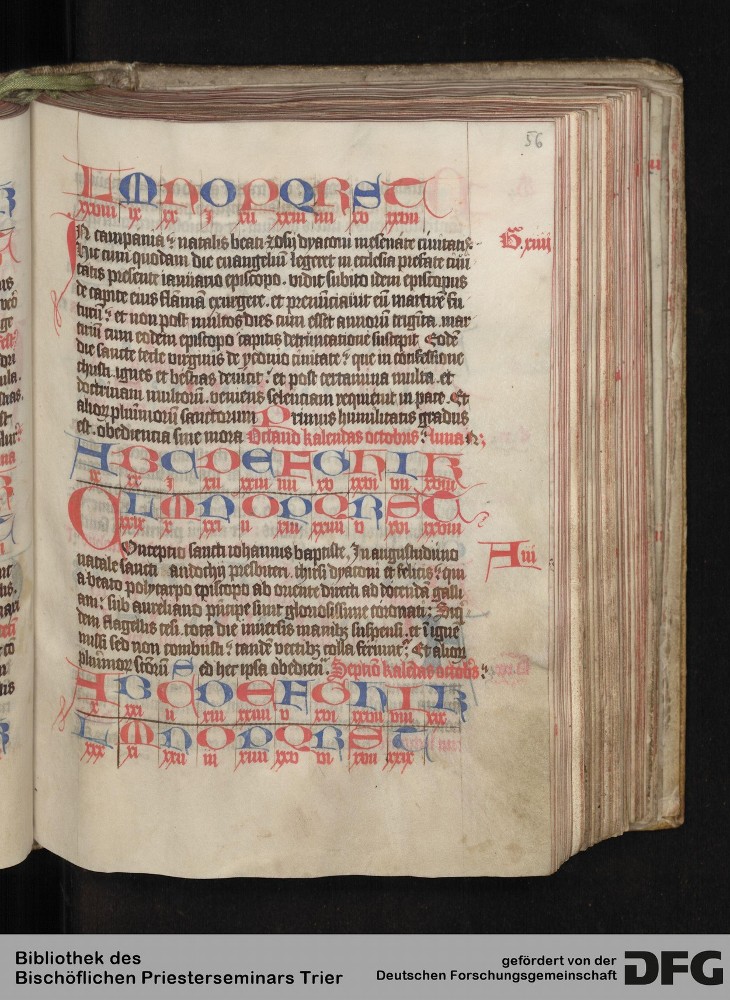 56
L M N O P Q R S T
xxviii ix xx i xii xxiii iiii xv xxvii
In campania natalis beati zosij dyaconi mesenate ciuitatis
Hic cum quodam die euangeliū legeret in ecclesia prefate ciui
tatis presente ianuario episcopo. vidit subito idem episcopus
de capite eius flāmam exurgere. et prenūciauit eū martirē fu
turū et non post multos dies cum esset annorū triginta. mar
tiriū cum eodem episcopo capitis detrūncatione suscepit. Eodē
die sancte tecle virginis de yconio ciuitate que in confessione
christi. ignes et bestias deuicit. et post certamina multa. et
doctrinam multorū. veniens seleuciam requieuit in pace. Et
alioꝝ plurimorū sanctorum Primus humilitatis gradus
est. obediencia sine mora Octauo kalendas octobris Luna
A B C D E F G H I K
ix xx i xii xxiii iiii xv xxvi vii xviii
L M N O P Q R S T
xxix x xxi ii xiii xxiiii v xvi xxviii
Conceptio sancti iohannis baptiste. In augustiduno
natale sancti andochij presbiteri. thirsi dyaconi et felicis qui
a beato polycarpo episcopo ab oriente directi ad docendā galli
am. sub aureliano prīcipe sunt gloriosissime coronati. Siq
dem flagellis cesi. tota die inuersis manibꝫ suspensi. et ī igne
missi sed non combusti. tandē vectibꝫ colla feriunt. Et alioꝝ
plurimoꝝ sctōrū Sed hec ipsa obedien. Septīo kalēdas octobrꝭ
A B C D E F G H I K
x xxi ii xiii xxiiii v xvi xxvii viii xix
L M N O P Q R S T
xxx xi xxii iii xiiii xxv vi xvii xxix
B. xiiij
A iii
Bibliothek des
Bischöflichen Priesterseminars Trier
gefördert von der
Deutschen Forschungsgemeinschaft
DFG